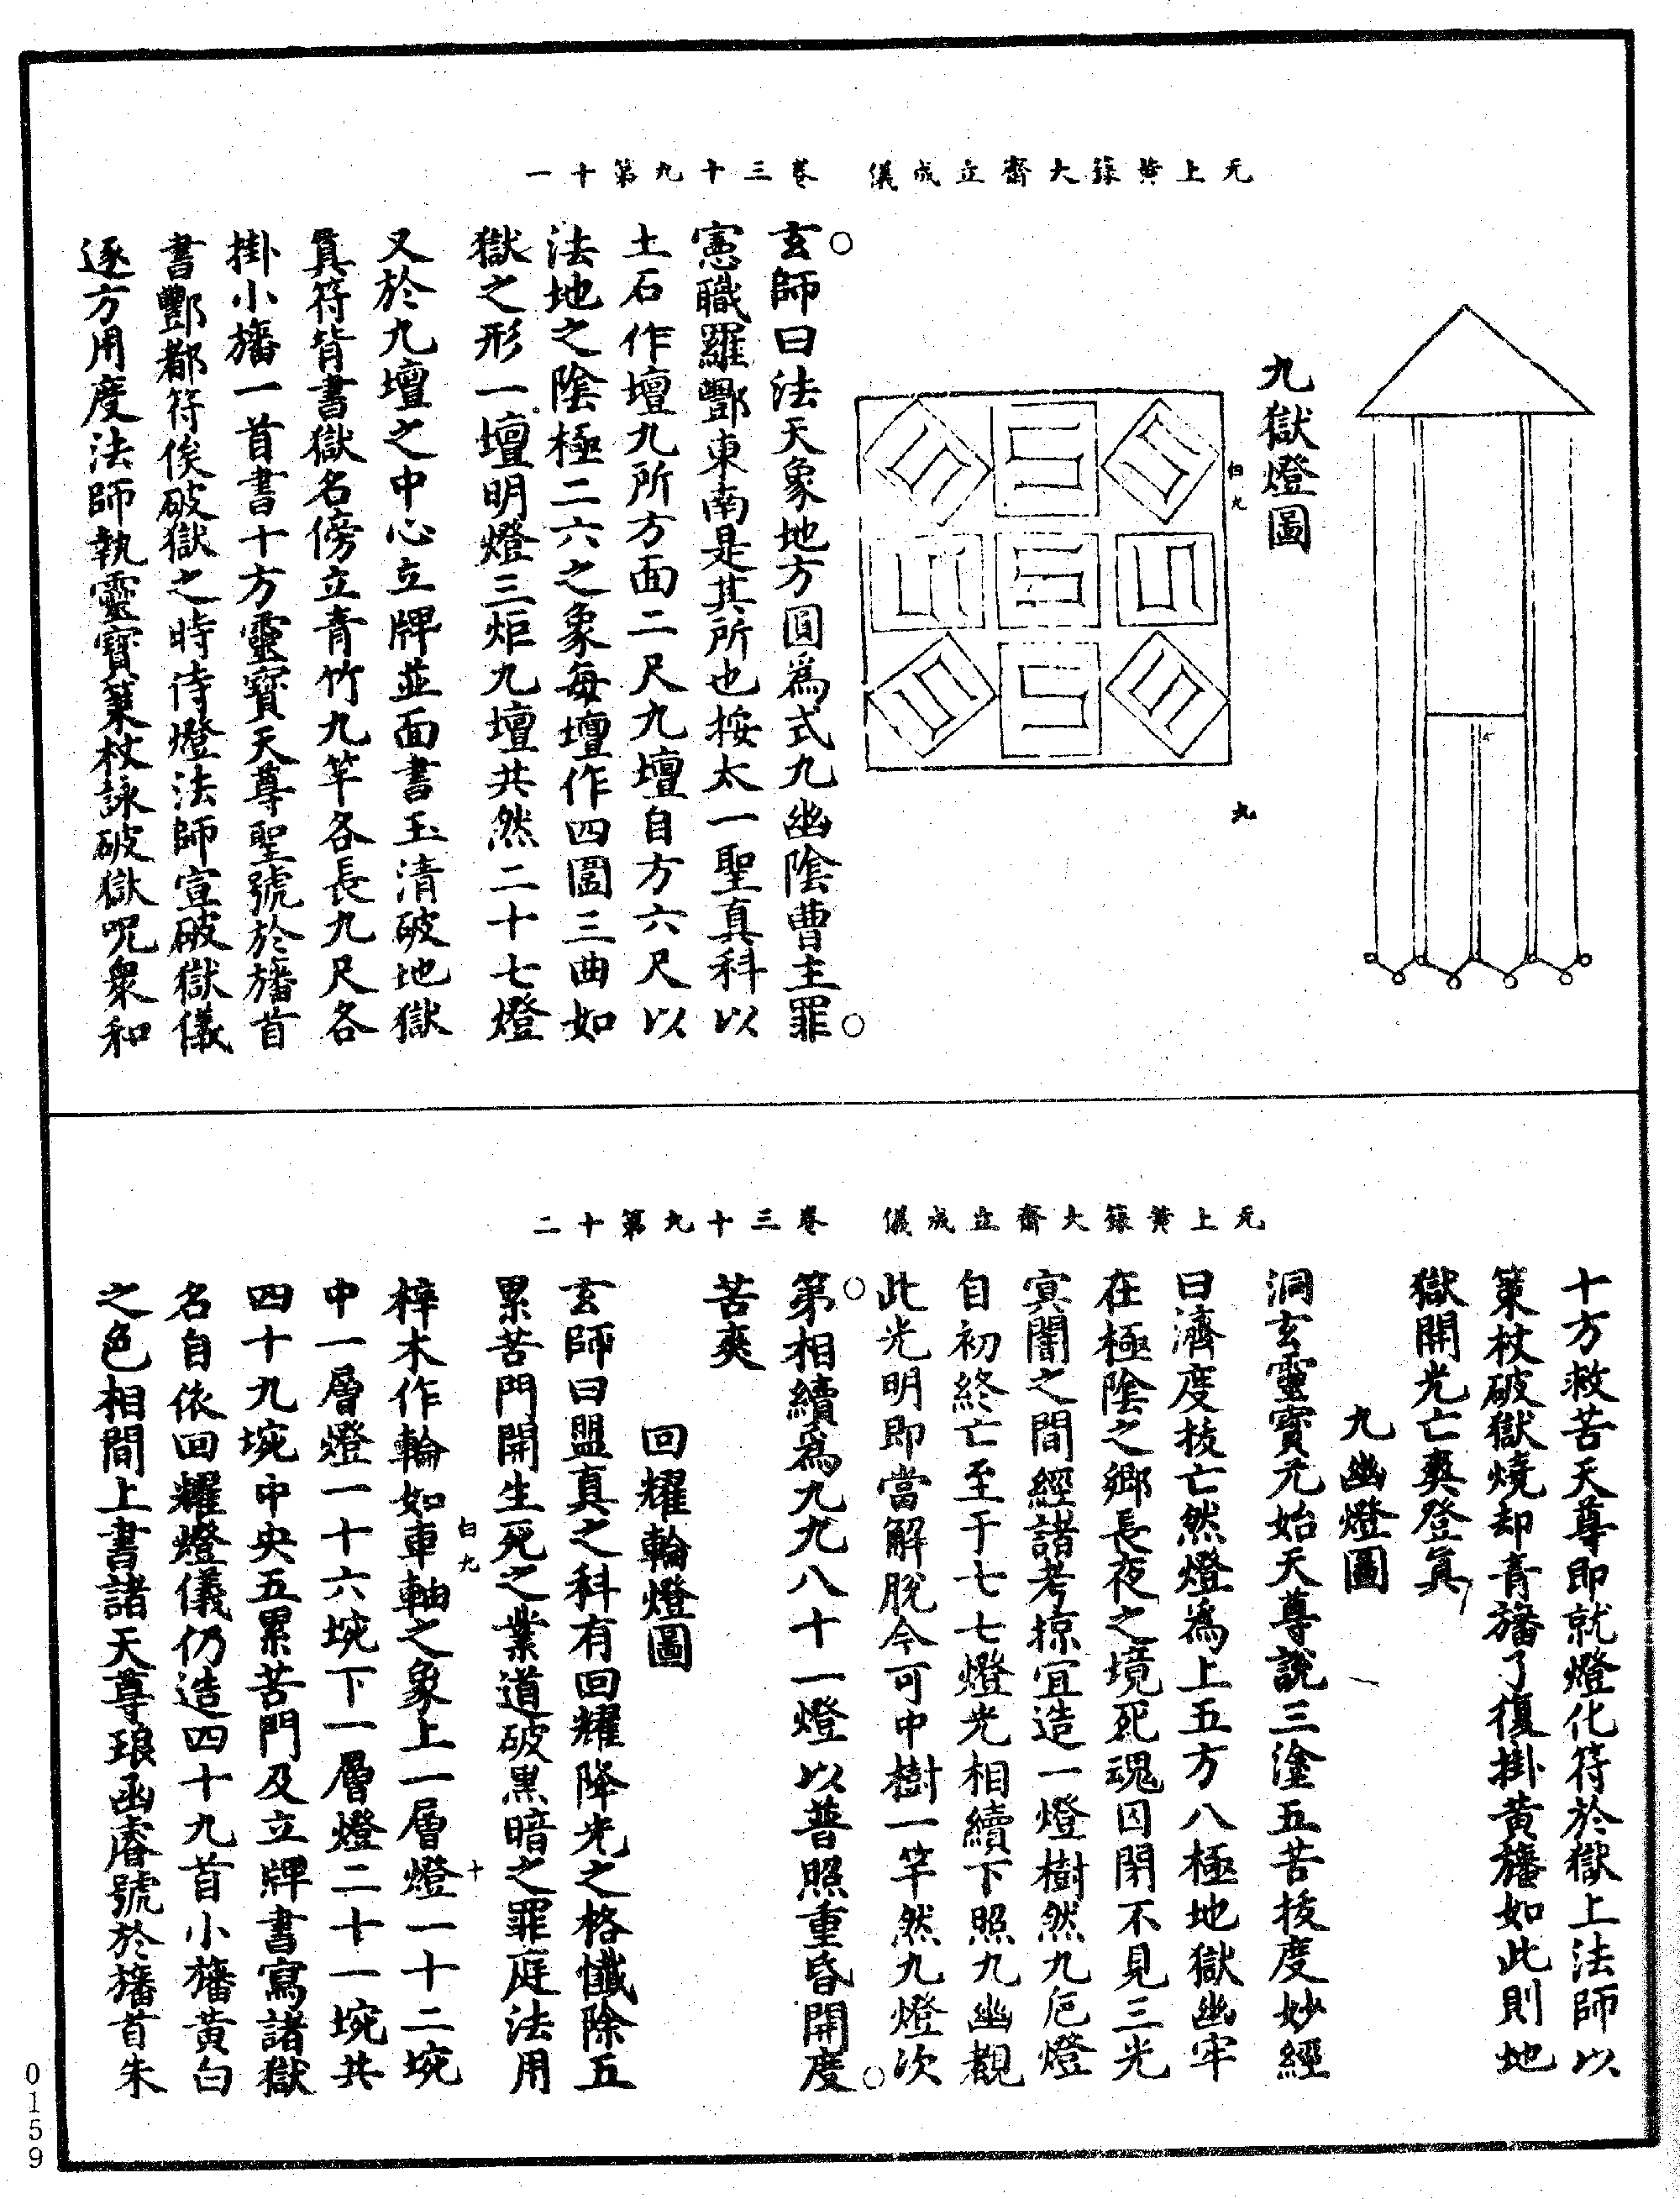 元上黃籙大齋立成儀　卷三十九第十一
九獄燈圖
白九
九
玄師曰法天象地方圓爲式九幽陰曹主罪
憲職羅酆東南是其所也按太一聖真科以
土石作壇九所方面二尺九壇自方六尺以
法地之陰極二六之象每壇作四圖三曲如
獄之形一壇明燈三炬九壇共然二十七燈
又於九壇之中心立牌並面書玉清破地獄
真符背書獄名傍立青竹九竿各長九尺各
掛小旛一首書十方靈寶天尊聖號於旛首
書酆都符俟破獄之時侍燈法師宣破獄儀
逐方用度法師執靈寶策杖詠破獄呪衆和
元上黃籙大齋立成儀　卷三十九第十二
十方救苦天尊即就燈化符於獄上法師以
策杖破獄燒却青旛了復掛黃旛如此則地
獄開光亡爽登真
九幽燈圖
洞玄靈寶元始天尊說三塗五苦拔度妙經
曰濟度拔亡然燈爲上五方八極地獄幽牢
在極陰之鄉長夜之境死魂囚閉不見三光
冥闇之間經諸考掠宜造一燈樹然九巵燈
自初終亡至于七七燈光相續下照九幽覩
此光明即當解脫今可中樹一竿然九燈次
第相續爲九九八十一燈以普照重昏開度
苦爽
回耀輪燈圖
玄師曰盟真之科有回耀降光之格懺除五
累苦門開生死之業道破黑暗之罪庭法用
梓木作輪如車軸之象上一層燈一十二埦
白九
十
中一層燈一十六埦下一層燈二十一埦共
四十九埦中央五累苦門及立牌書寫諸獄
名自依回耀燈儀仍造四十九首小旛黃白
之色相間上書諸天尊琅函睿號於旛首朱
0159